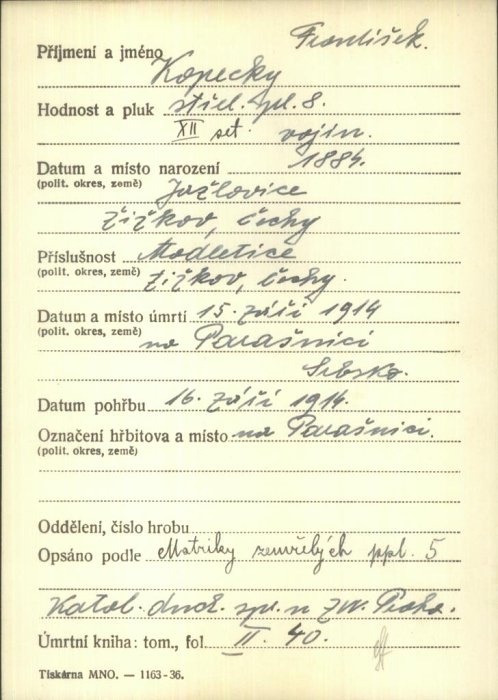 František.
Příjmení a jméno Kopecky
Hodnost a pluk střel. pl. 8.
XII set. vojín.
Datum a místo narození 1884.
(polit. okres, země) Jažlovice
Žižkov, Čechy
Příslušnost Modletice
(polit. okres, země) Žižkov, Čechy.
Datum a místo úmrtí 15. září 1914
(polit. okres, země) na Parašnici
Srbsko.
Datum pohřbu 16. září 1914.
Označení hřbitova a místo na Parašnici.
(polit. okres, země)
Oddělení, číslo hrobu
Opsáno podle Matriky zemřelých ppl. 5
Katol. duch. spr. n ZVV. Praha.
Úmrtní kniha: tom., fol. II. 40.
Tiskárna MNO. — 1163-36.